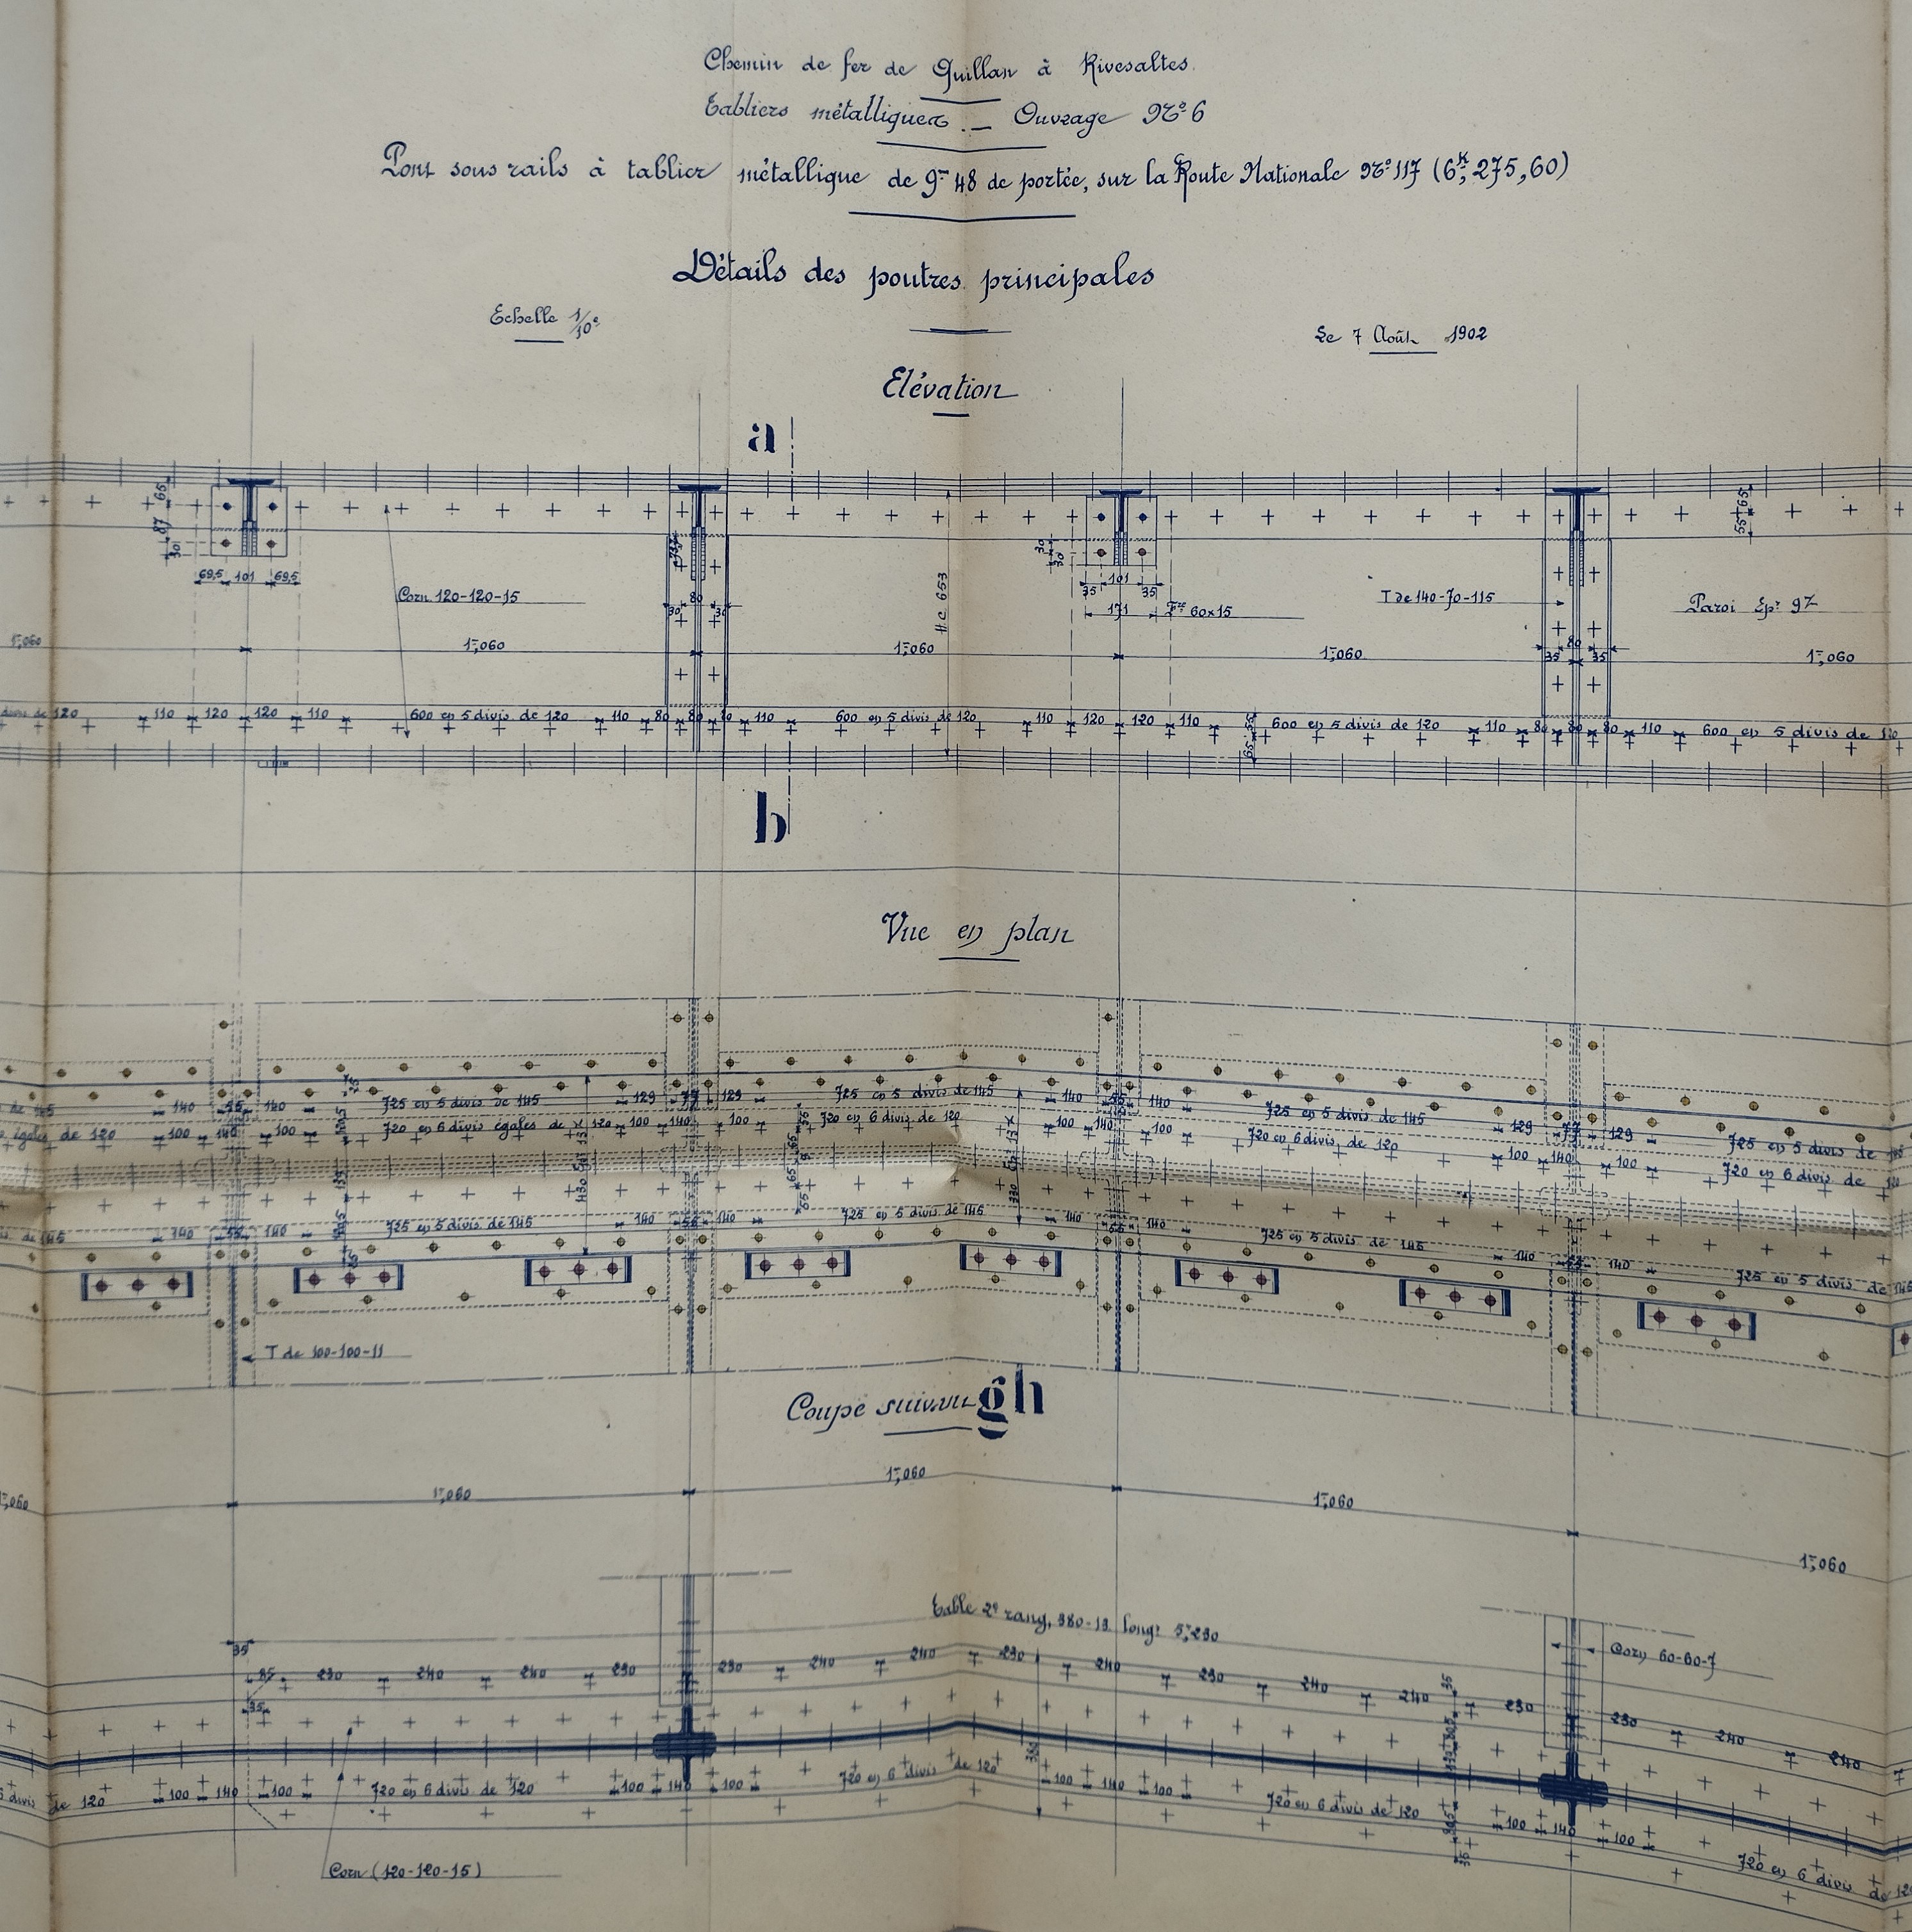 Chemin de fer de Quillan à Rivesaltes
Tabliers métalliques. — Ouvrage N° 6
Pont sous rails à tablier métallique de 9m 48 de portée, sur la Route Nationale N° 117 (6K,275,60)
Détails des poutres principales
Echelle 1/10e
Le 7 Août 1902
Elévation
a
65
87
30
69,5 101 69,5
Corn. 120-120-15
80
30 30
Hr 653
30
30
101
35 35
171
60x15
T de 140-70-115
80
35 35
Paroi Epr 9
65
55
1m,060 1m,060 1m,060 1m,060 1m,060
divis de 120 110 120 120 110 600 en 5 divis de 120 110 80 80 80 110 600 en 5 divis de 120 110 120 120 110 600 en 5 divis de 120 110 80 80 80 110 600 en 5 divis de 120
65 55
b
Vue en plan
de 145 140 55 140 725 en 5 divis de 145 129 77 129 725 en 5 divis de 145 140 55 140 725 en 5 divis de 145 129 77 129 725 en 5 divis de 145
égales de 120 100 140 100 720 en 6 divis égales de 120 100 140 100 720 en 6 divis de 120 100 140 100 720 en 6 divis de 120 100 140 100 720 en 6 divis de 120
divis de 145 140 55 140 725 en 5 divis de 145 140 55 140 725 en 5 divis de 145 140 55 140 725 en 5 divis de 145 140 55 140 725 en 5 divis de 145
T de 100-100-11
Coupe suivant gh
1m,060 1m,060 1m,060 1m,060 1m,060
Table 2e rang, 380-13 longr 5m,230
Corn 60-60-7
35
35 230 240 240 230 230 240 240 230 240 230 240 240 230 230 240 240
35
380
6 divis de 120 100 140 100 720 en 6 divis de 120 100 140 100 720 en 6 divis de 120 100 140 100 720 en 6 divis de 120 100 140 100 720 en 6 divis de 120
Corn (120-120-15)